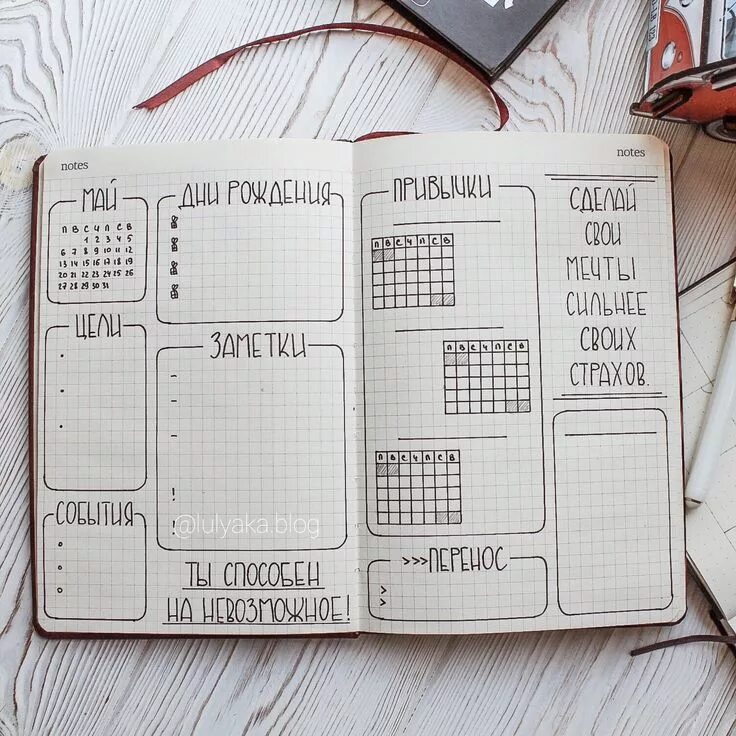 notes
МАЙ
П В С Ч П С В
1 2 3 4 5
6 7 8 9 10 11 12
13 14 15 16 17 18 19
20 21 22 23 24 25 26
27 28 29 30 31
ДНИ РОЖДЕНИЯ
ЦЕЛИ
ЗАМЕТКИ
!
СОБЫТИЯ
@lulyaka.blog
ТЫ СПОСОБЕН
НА НЕВОЗМОЖНОЕ!
notes
ПРИВЫЧКИ
П В С Ч П С В
П В С Ч П С В
П В С Ч П С В
>>>ПЕРЕНОС
>
>
СДЕЛАЙ
СВОИ
МЕЧТЫ
СИЛЬНЕЕ
СВОИХ
СТРАХОВ.